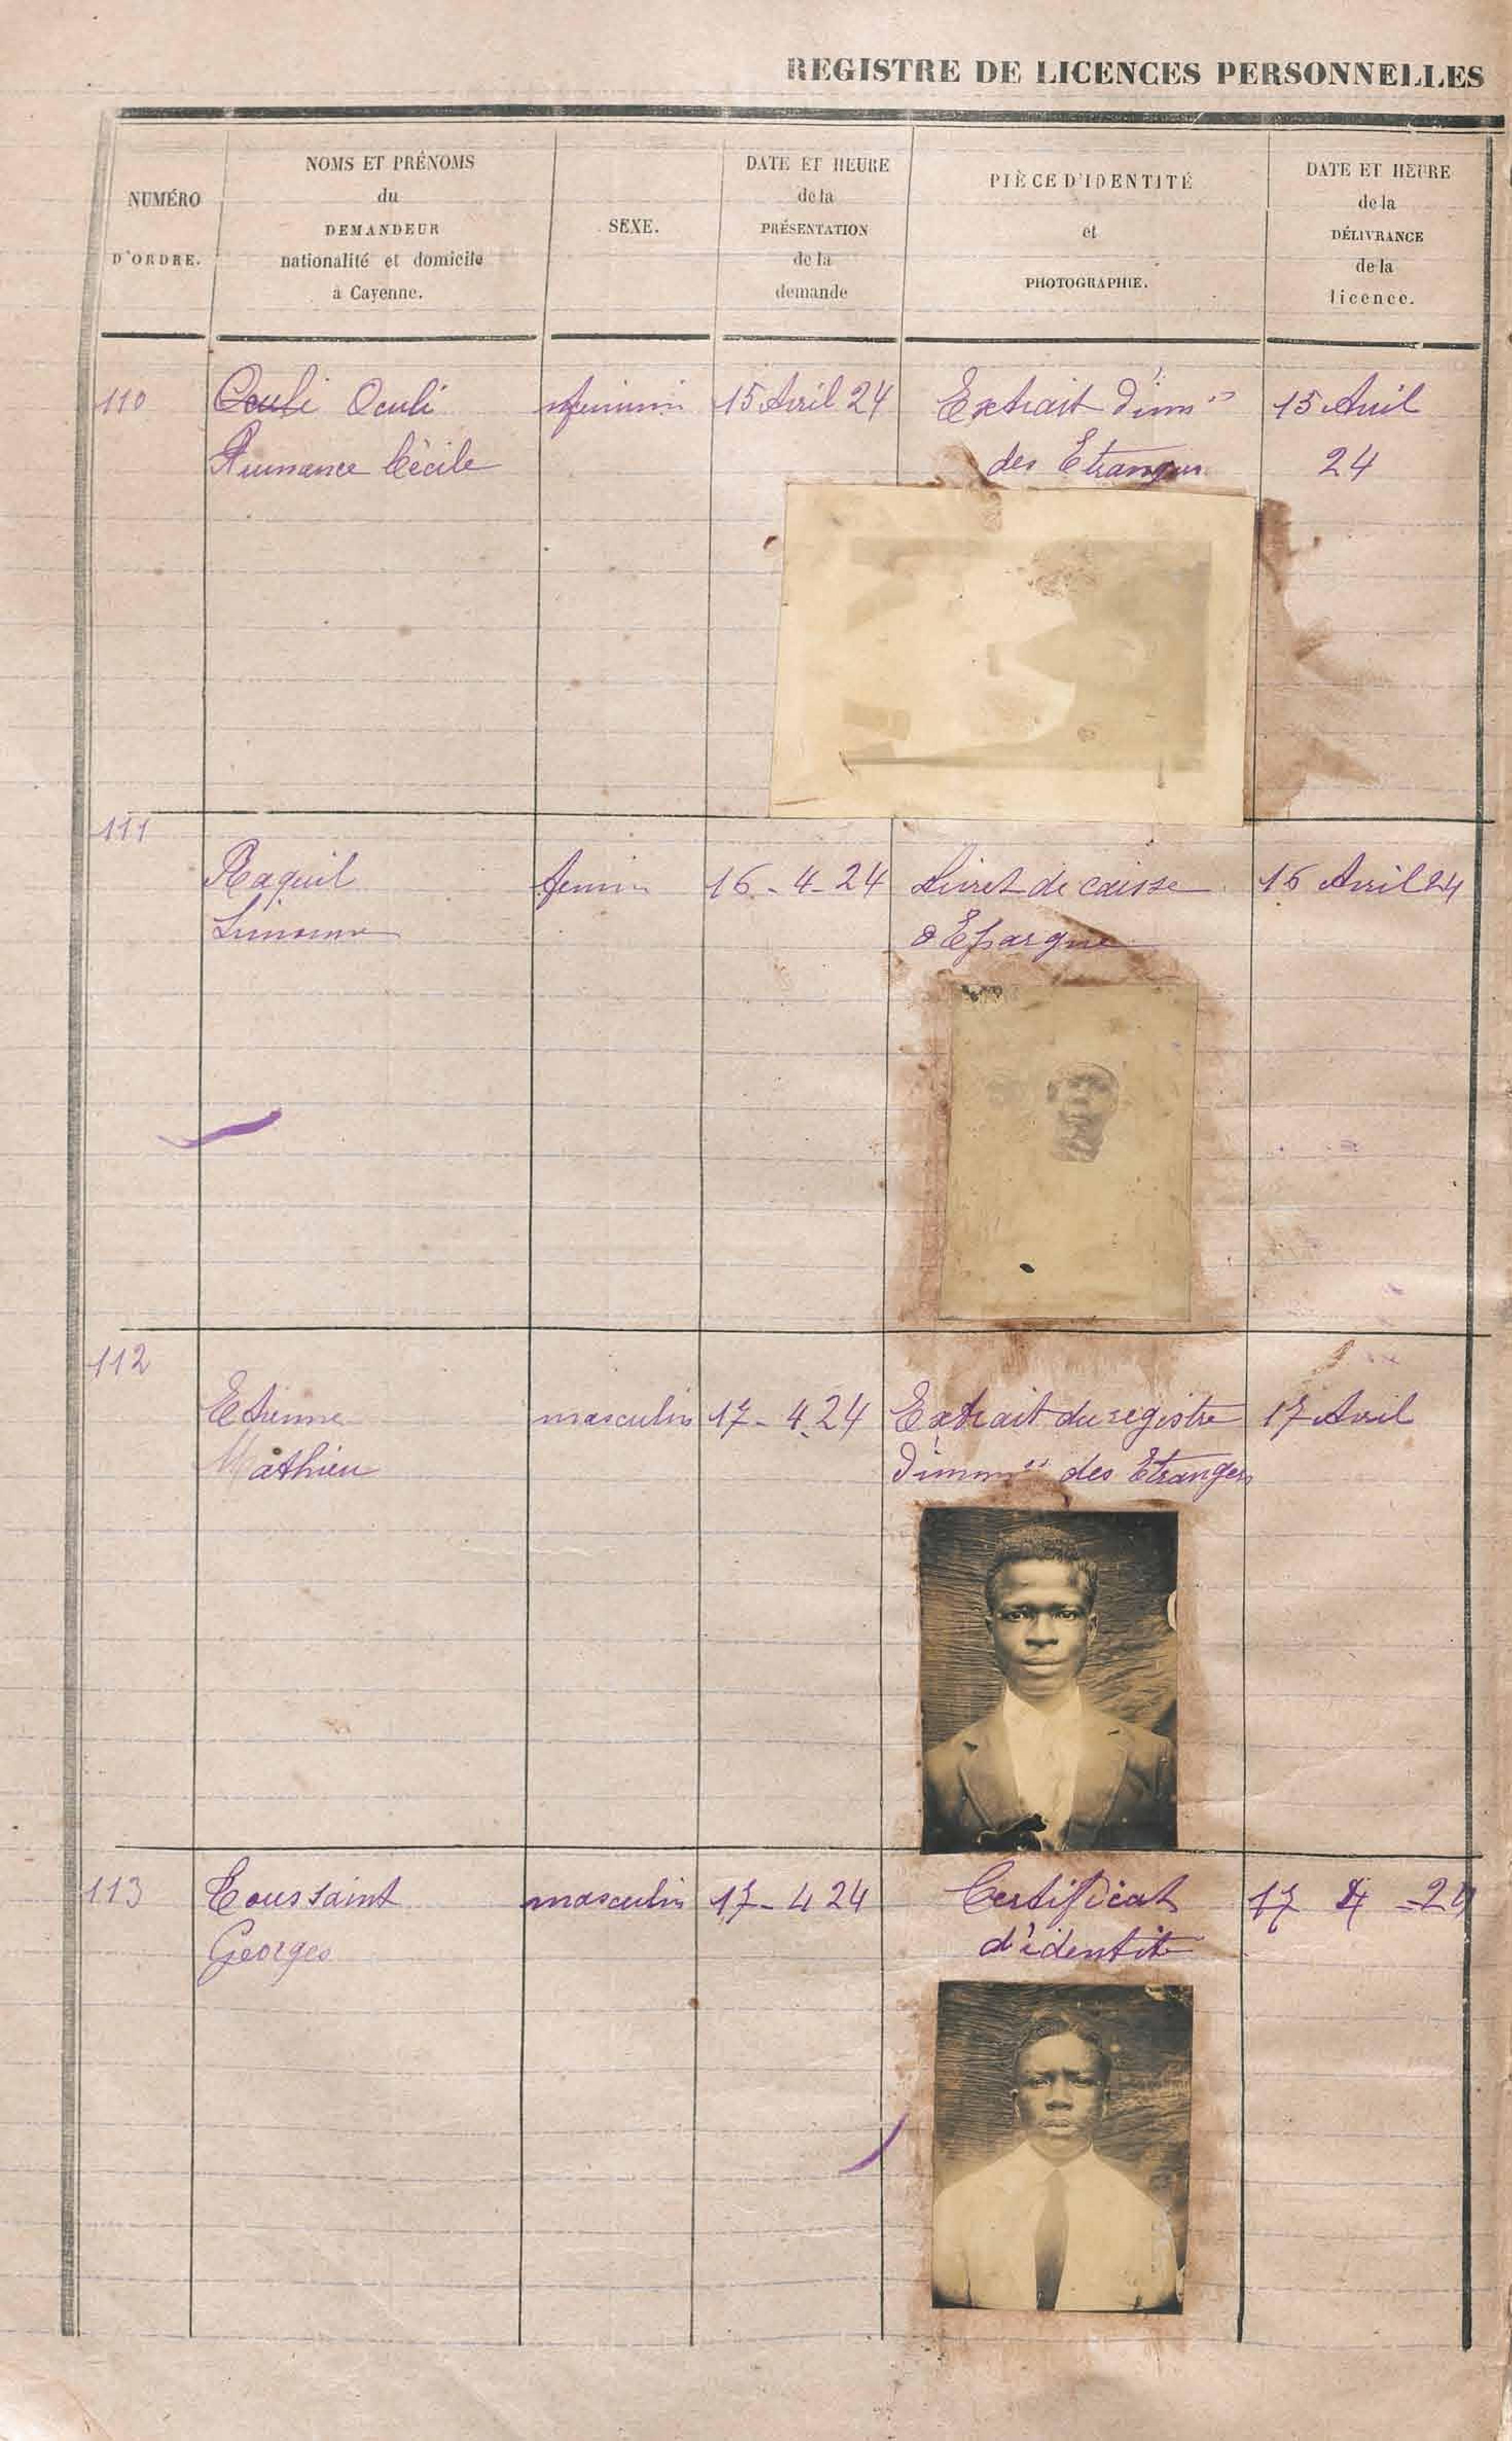 REGISTRE DE LICENCES PERSONNELLES
NUMÉRO
D'ORDRE.
NOMS ET PRÉNOMS
du
DEMANDEUR
nationalité et domicile
à Cayenne.
SEXE.
DATE ET HEURE
de la
PRÉSENTATION
de la
demande
PIÈCE D'IDENTITÉ
et
PHOTOGRAPHIE.
DATE ET HEURE
de la
DÉLIVRANCE
de la
licence.
110
Oculi
Cécile
feminin
15 Avril 24
Extrait d'imm
des Etrangers
15 Avril
24
111
Raquil
femin
16-4-24
Livret de caisse
d'Epargne
16 Avril 24
112
Etienne
Mathieu
masculin
17-4.24
Extrait du registre
d'imm des Etrangers
17 Avril
113
Toussaint
Georges
masculin
17-4 24
Certificat
d'identité
17 4 -24